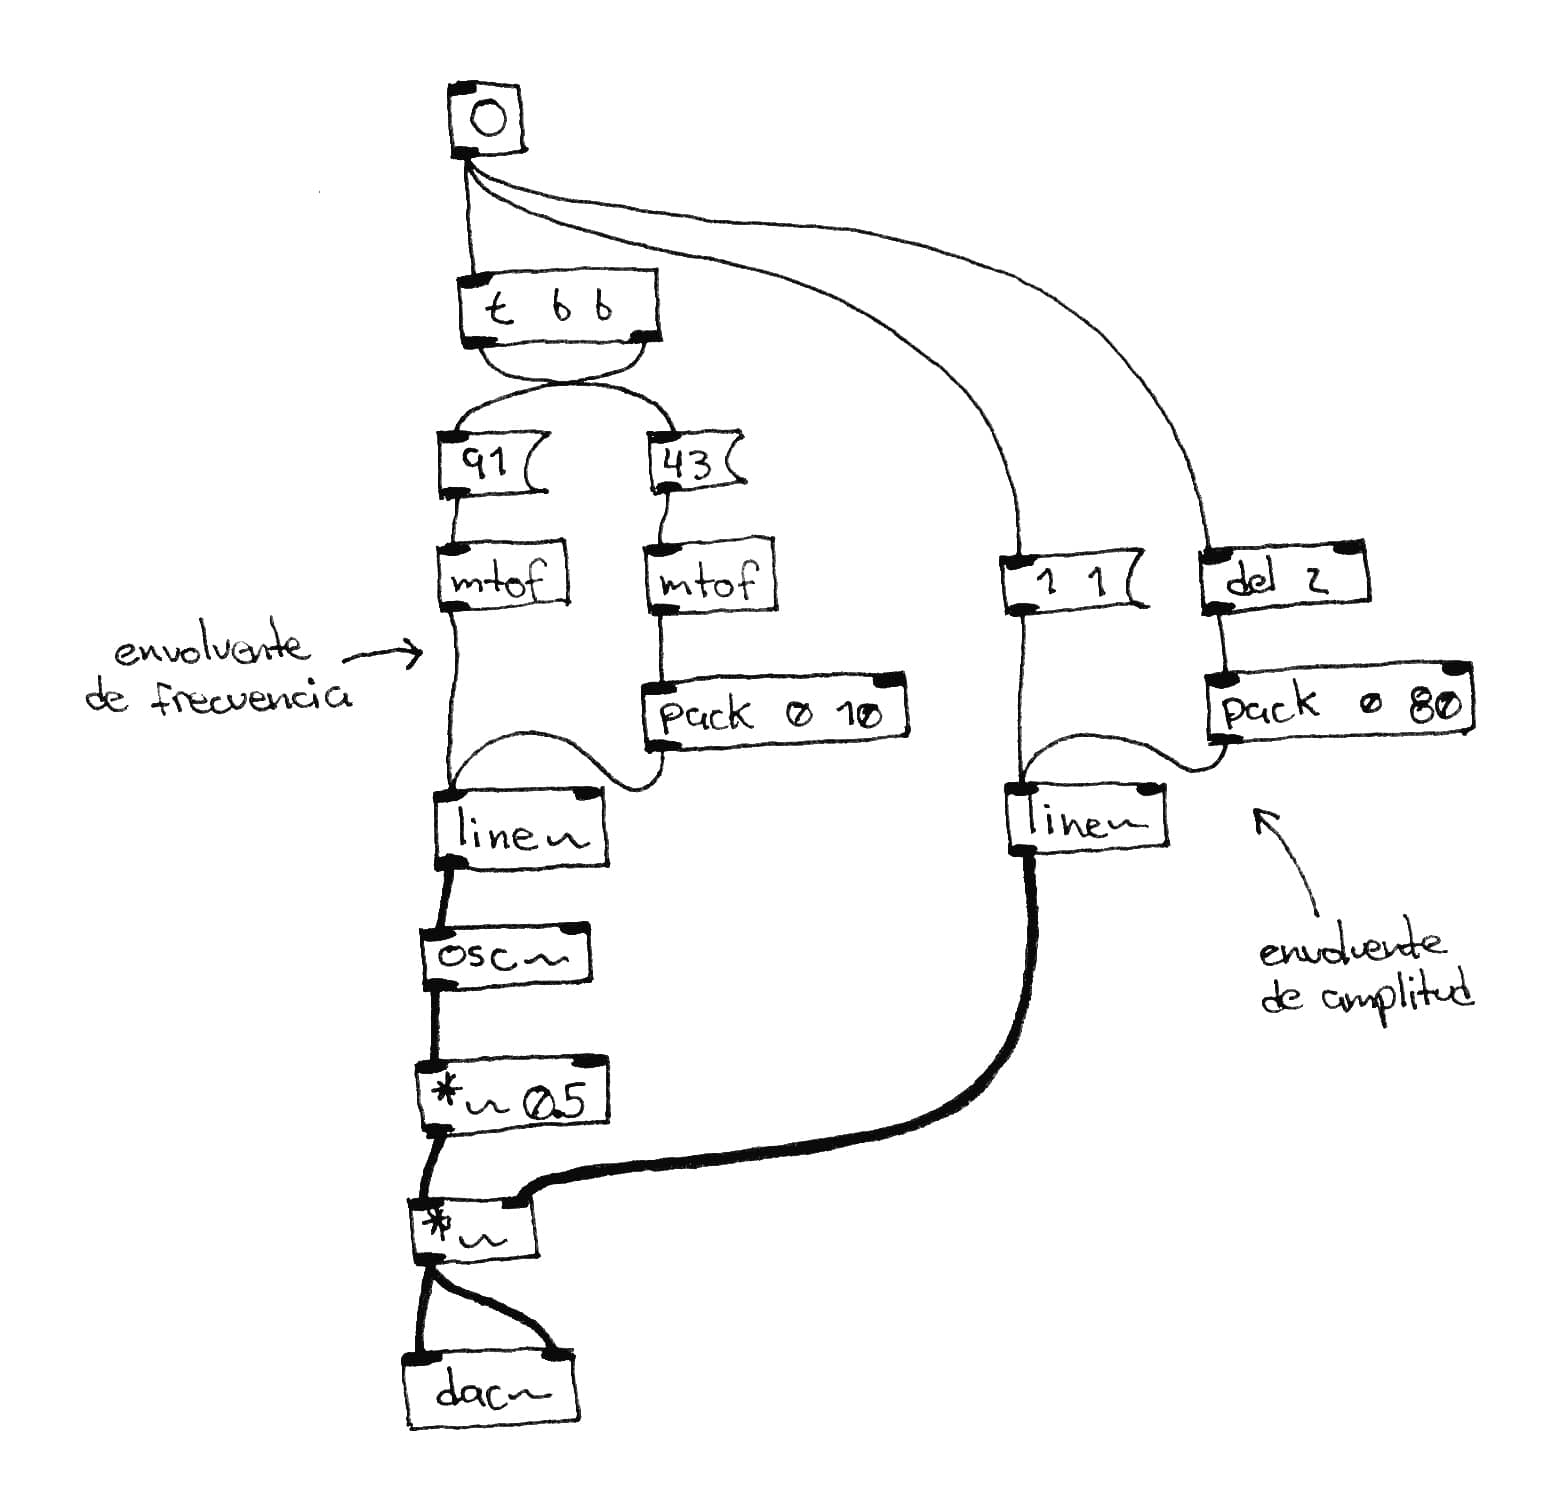 t b b
91
43
mtof
mtof
1 1
del 2
envolvente
de frecuencia
pack 0 10
pack 0 80
line~
line~
osc~
envolvente
de amplitud
*~ 0.5
*~
dac~